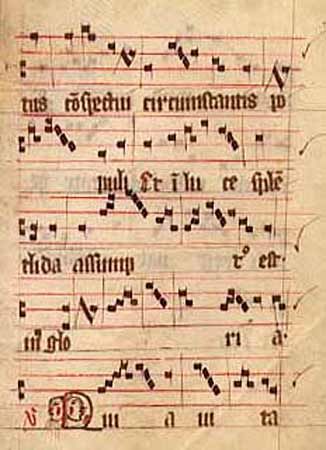 tus cōspectu circumstantis po
puli Et ī lu ce splē
dida assump tꝰ est.
in glo ri a.
℣ Q ui a ui ta